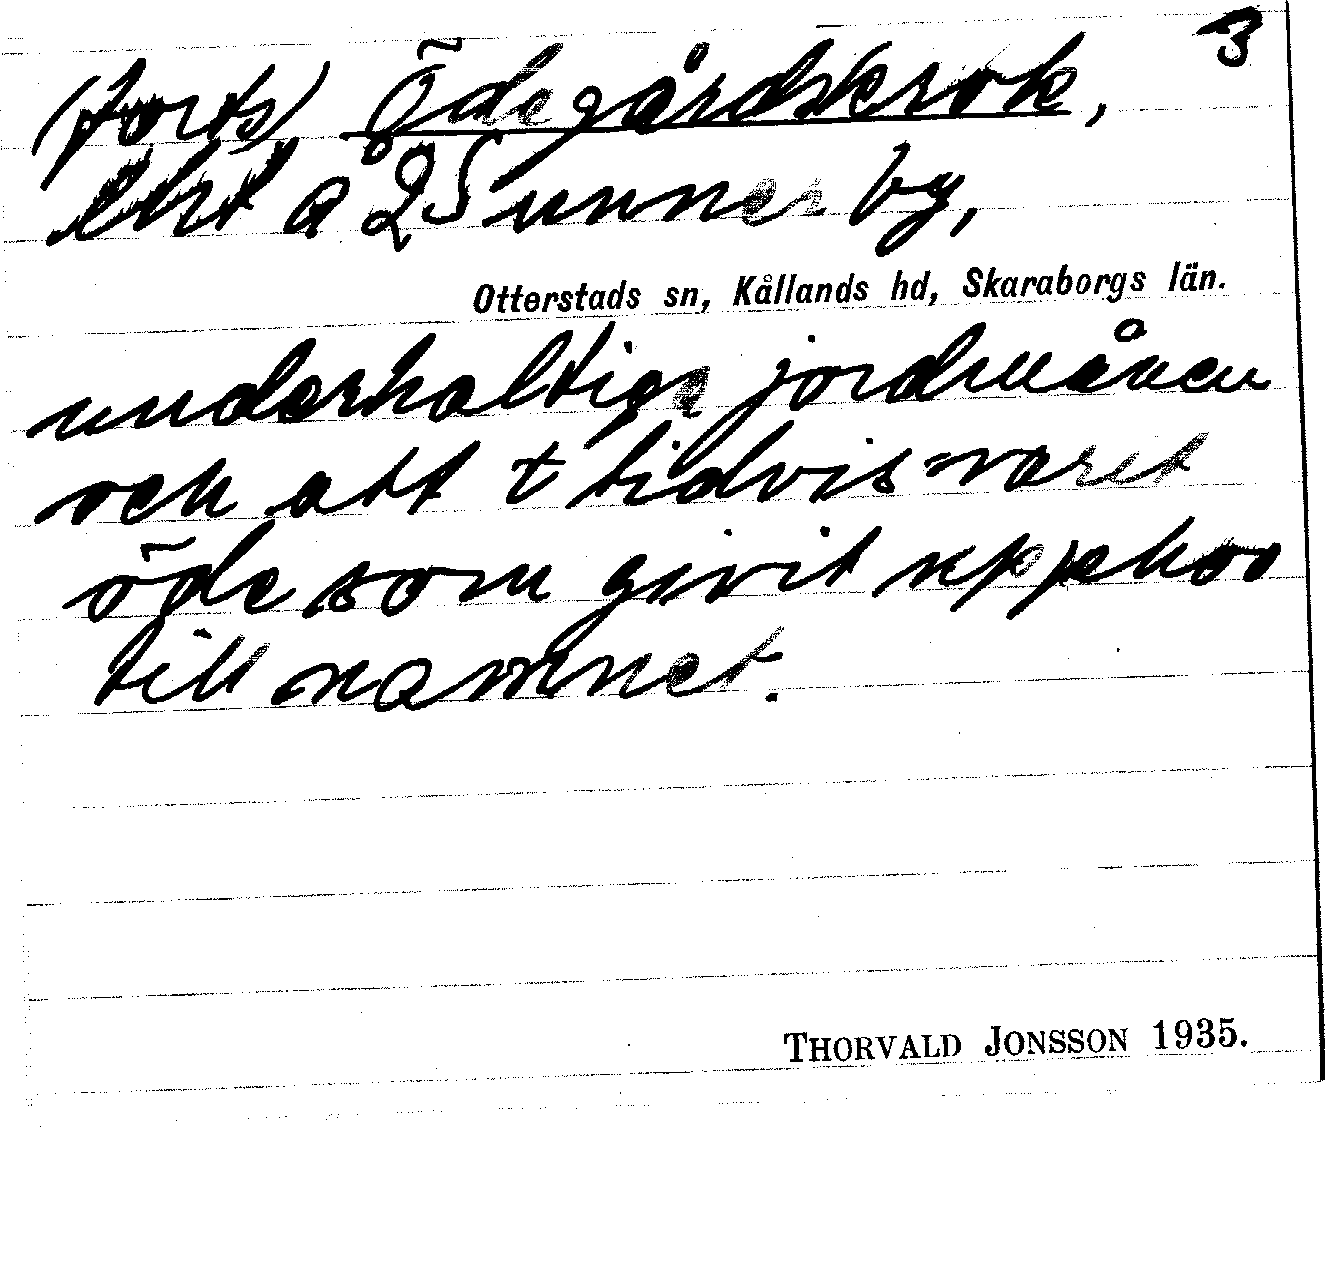 3
(forts) Ödegårdskrok,
lht a 2 Sunnerby,
Otterstads sn, Kållands hd, Skaraborgs län.
underhaltiga jordmånen
och att t tidvis varit
öde som givit upphov
till namnet.
THORVALD JONSSON 1935.